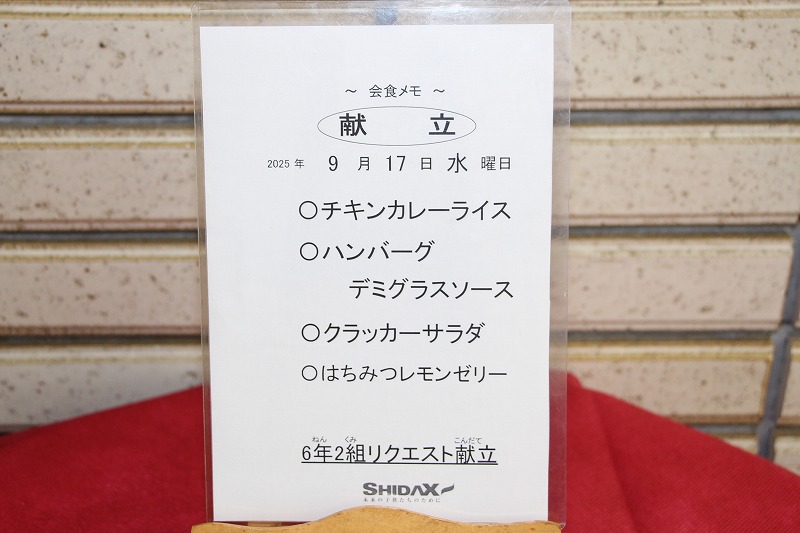 ～ 会食メモ ～
献 立
2025 年 9 月 17 日 水 曜日
○チキンカレーライス
○ハンバーグ
デミグラスソース
○クラッカーサラダ
○はちみつレモンゼリー
ねん くみ こんだて
6年2組リクエスト献立
SHIDAX
未来の子供たちのために